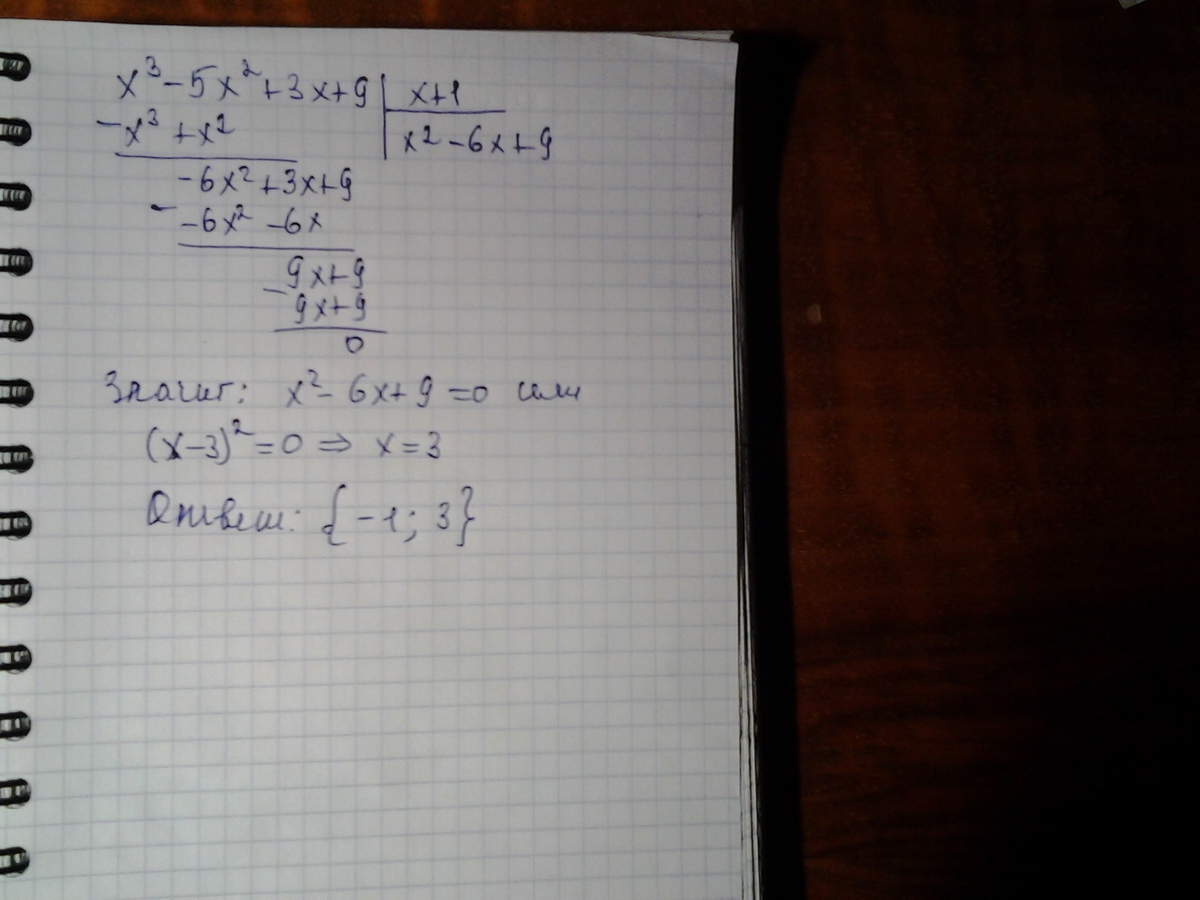 x³ - 5x² + 3x + 9 | x+1
- x³ + x² | x² - 6x + 9
-6x² + 3x + 9
- -6x² - 6x
- 9x + 9
9x + 9
0
Значит: x² - 6x + 9 = 0 или
(x-3)² = 0 ⇒ x = 3
Ответ: {-1; 3}